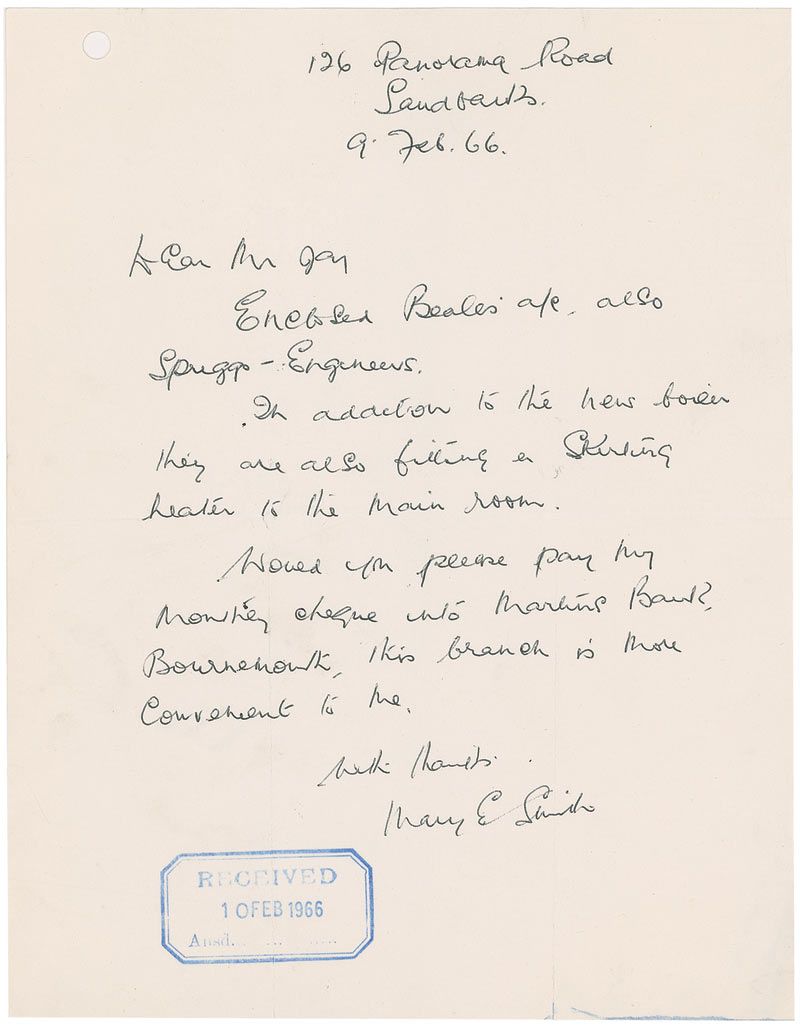 126 Panorama Road
Sandbanks.
9. Feb. 66.
Dear Mr Jay
Enclosed Beales a/c, also
Spriggs - Engineers.
In addition to the new boiler
they are also fitting a Skirting
heater to the main room.
Would you please pay my
monthly cheque into Martins Bank,
Bournemouth, this branch is more
convenient to me.
With thanks.
Mary E Smith
RECEIVED
10 FEB 1966
Ansd. ... ...